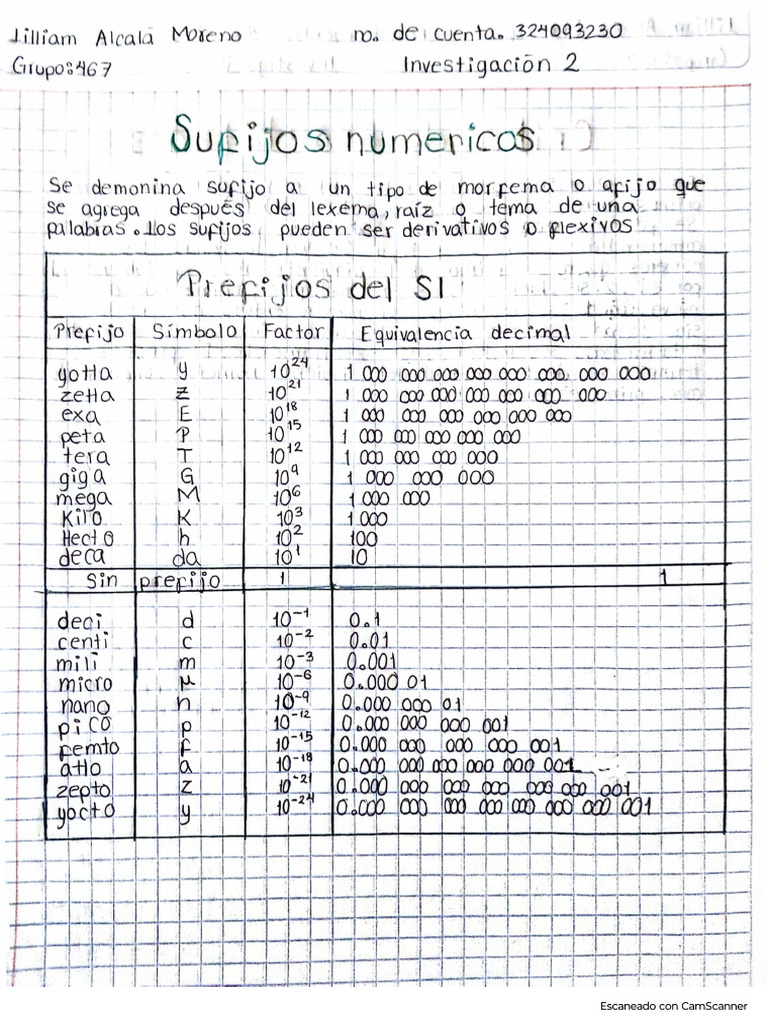 Lilliam Alcalá Moreno no. de cuenta. 324093230
Grupo:467 Investigación 2
Sufijos numericos
Se demonina sufijo a un tipo de morfema o afijo que
se agrega después del lexema, raíz o tema de una
palabras. Los sufijos pueden ser derivativos o flexivos
Prefijos del SI
Prefijo Símbolo Factor Equivalencia decimal
yotta y 10²⁴ 1 000 000 000 000 000 000 000 000
zetta z 10²¹ 1 000 000 000 000 000 000 000
exa E 10¹⁸ 1 000 000 000 000 000 000
peta P 10¹⁵ 1 000 000 000 000 000
tera T 10¹² 1 000 000 000 000
giga G 10⁹ 1 000 000 000
mega M 10⁶ 1 000 000
Kilo K 10³ 1 000
Hecto h 10² 100
deca da 10¹ 10
Sin prefijo 1 1
deci d 10⁻¹ 0.1
centi c 10⁻² 0.01
mili m 10⁻³ 0.001
micro μ 10⁻⁶ 0.000 01
nano n 10⁻⁹ 0.000 000 01
pico p 10⁻¹² 0.000 000 000 001
femto f 10⁻¹⁵ 0.000 000 000 000 001
atto a 10⁻¹⁸ 0.000 000 000 000 000 001
zepto z 10⁻²¹ 0.000 000 000 000 000 000 001
yocto y 10⁻²⁴ 0.000 000 000 000 000 000 000 001
Escaneado con CamScanner